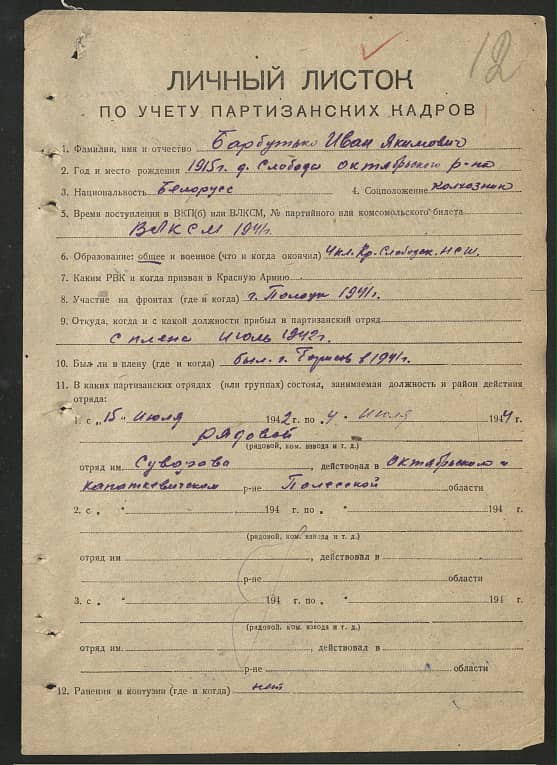 12
ЛИЧНЫЙ ЛИСТОК
ПО УЧЕТУ ПАРТИЗАНСКИХ КАДРОВ
1. Фамилия, имя и отчество Барбутько Иван Якимович
2. Год и место рождения 1915 г. д. Слобода Октябрьского р-на
3. Национальность Белорусс 4. Соцположение колхозник
5. Время поступления в ВКП(б) или ВЛКСМ, № партийного или комсомольского билета
ВЛКСМ 1941г.
6. Образование: общее и военное (что и когда окончил) 4 кл. Кр. Слободск. НСШ.
7. Каким РВК и когда призван в Красную Армию
8. Участие на фронтах (где и когда) г. Полоцк 1941г.
9. Откуда, когда и с какой должности прибыл в партизанский отряд
с плена июль 1942г.
10. Был ли в плену (где и когда) был. г. в 1941г.
11. В каких партизанских отрядах (или группах) состоял, занимаемая должность и район действия
отряда:
1. с „15" июля 1942 г. по 4 июля 1944 г.
рядовой
(рядовой, ком. взвода и т. д.)
отряд им. Суворова, действовал в Октябрьского и
капаткевичском р-не Полесской области
2. с „ " 194 г. по „ " 194 г.
(рядовой, ком. взвода и т. д.)
отряд им, действовал в
р-не области
3. с „ " 194 г. по „ " 194 г.
(рядовой, ком. взвода и т. д.)
отряд им., действовал в
р-не области
12. Ранения и контузии (где и когда) нет